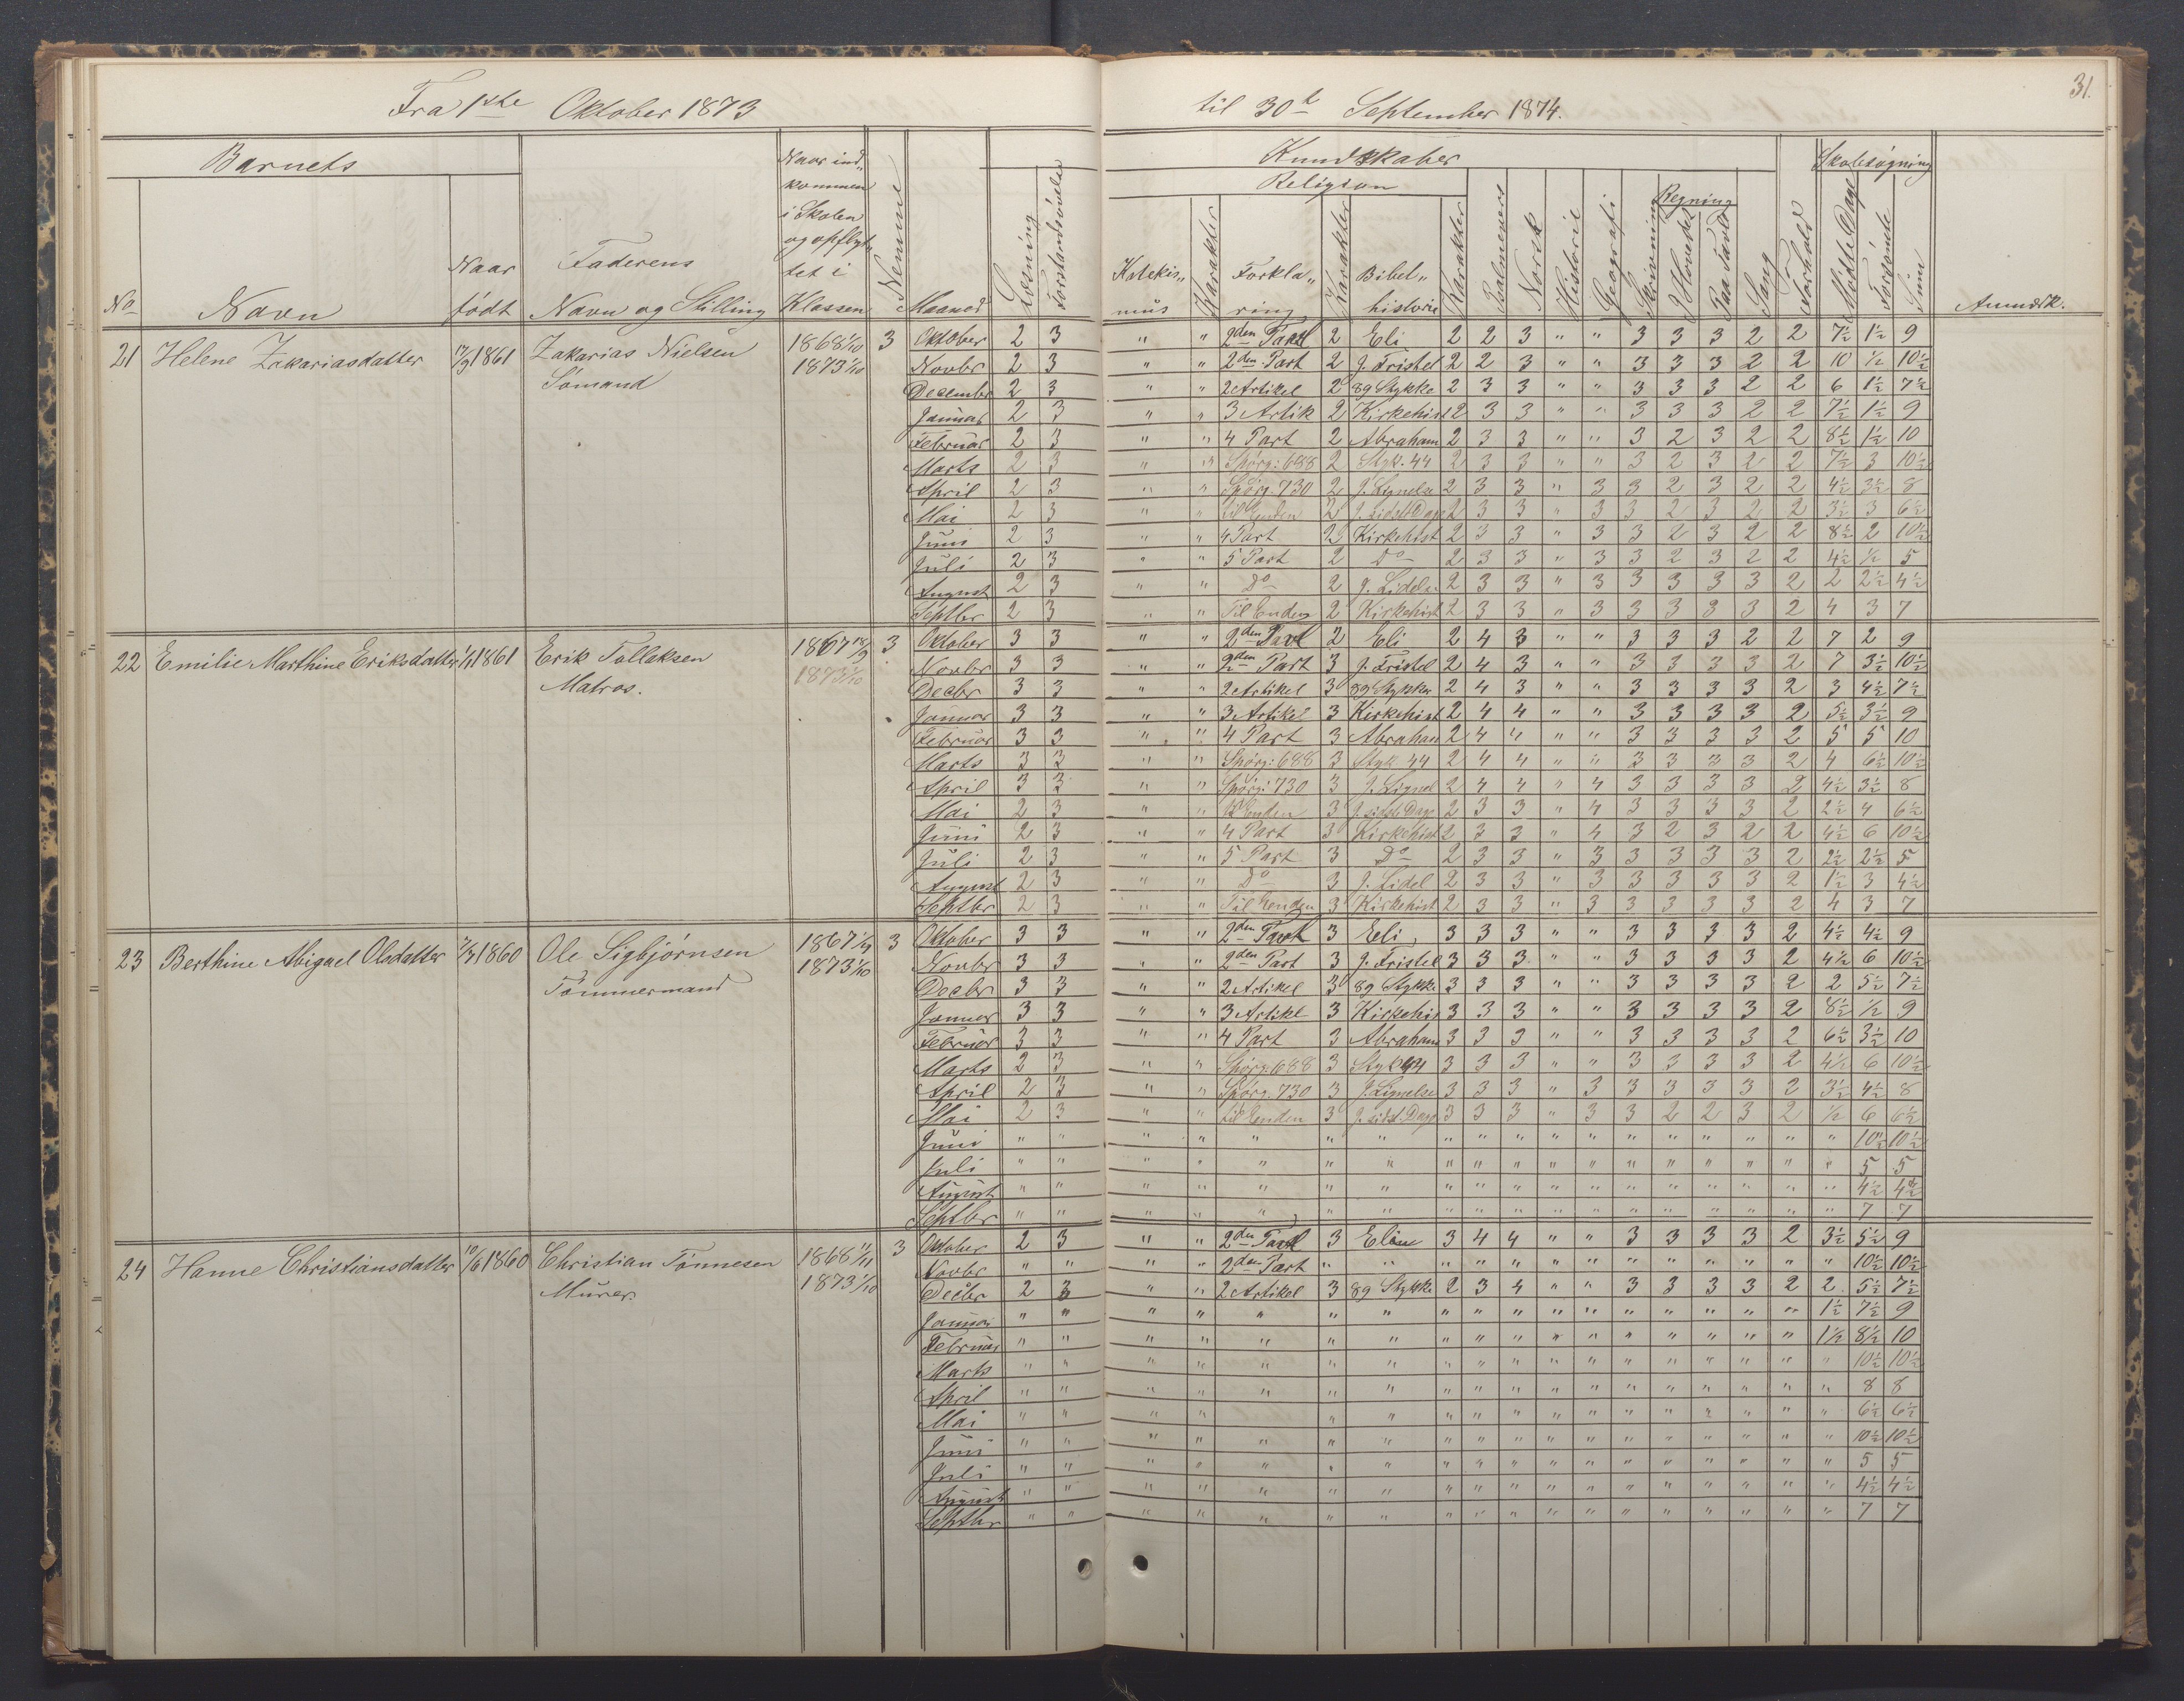 Fra 1ste Oktober 1873 til 30te September 1874.
31.
Barnets
No Navn Naar født
Faderens Navn og Stilling
Naar ind„kommen i Skolen og opflyttet i Klassen
Nemme
Maaned
Læsning
Forstandsøvelse
Kundskaber
Religion
Katekis„mus Karakter Forkla„ring Karakter Bibel„historie Karakter
Psalmevers Norsk Historie Geografi Skrivning
Regning
I Hovedet Paa Tavle
Sang Forhold
Skolesøgning
Mødte Dage Forsømte Sum
Anmærk.
21 Helene Zakariasdatter 17/9 1861 Zakarias Nielsen 1868 1/10 3 Oktober 2 3 " " 2den Part 2 Eli 2 2 3 " " 3 3 3 2 2 7½ 1½ 9
Sømand 1873 1/10 Novbr 2 3 " " 2den Part 2 J. Fristel 2 2 3 " " 3 3 3 2 2 10 ½ 10½
December 2 3 " " 2 Artikel 2 89 Stykke 2 3 3 " " 3 3 3 2 2 6 1½ 7½
Januar 2 3 " " 3 Artik 2 Kirkehist 2 3 3 " " 3 3 3 2 2 7½ 1½ 9
Februar 2 3 " " 4 Part 2 Abraham 2 3 3 " " 3 2 3 2 2 8½ 1½ 10
Marts 2 3 " " Spørg: 688 2 Styk. 44 2 3 3 " " 3 2 3 2 2 7½ 3 10½
April 2 3 " " Spørg. 730 2 J. Lignelse 2 3 3 " 3 3 2 3 2 2 4½ 3½ 8
Mai 2 3 " " til Enden 2 J. sidste Dage 2 3 3 " 3 3 2 3 2 2 3½ 3 6½
Juni 2 3 " " 4 Part 2 Kirkehist 2 3 3 " 3 3 2 3 2 2 8½ 2 10½
Juli 2 3 " " 5 Part 2 Do 2 3 3 " 3 3 2 3 2 2 4½ ½ 5
August 2 3 " " Do 2 J. Lidelse 2 3 3 " 3 3 3 3 3 2 2 2½ 4½
Septbr 2 3 " " Til Enden 2 Kirkehist 2 3 3 " 3 3 3 3 3 2 4 3 7
22 Emilie Marthine Eriksdatter 1/1 1861 Erik Tollaksen 1867 18/9 3 Oktober 3 3 " " 2den Part 2 Eli 2 4 3 " " 3 3 3 2 2 7 2 9
Matros. 1873 1/10 Novbr 3 3 " " 2den Part 3 J. Fristel 2 4 3 " " 3 3 3 3 2 7 3½ 10½
Decbr 3 3 " " 2 Artikel 3 89 Stykke 2 4 3 " " 3 3 3 3 2 3 4½ 7½
Januar 3 3 " " 3 Artikel 3 Kirkehist 2 4 4 " " 3 3 3 3 2 5½ 3½ 9
Februar 3 3 " " 4 Part 3 Abraham 2 4 4 " " 3 3 3 3 2 5 5 10
Marts 3 3 " " Spørg: 688 3 Styk 44 2 4 4 " " 3 3 3 3 2 4 6½ 10½
April 3 3 " " Spørg: 730 3 J. Lignel 2 4 4 " 4 3 3 3 3 2 4½ 3½ 8
Mai 2 3 " " til Enden 3 J. sidste Dage 2 3 3 " 4 3 3 3 3 2 2½ 4 6½
Juni 2 3 " " 4 Part 3 Kirkehist 2 3 3 " 4 3 2 3 2 2 4½ 6 10½
Juli 2 3 " " 5 Part 3 Do 2 3 3 " 3 3 3 3 3 2 2½ 2½ 5
August 2 3 " " Do 3 J. Lidel 2 3 3 " 3 3 3 3 3 2 1½ 3 4½
Septbr 2 3 " " Til Enden 3 Kirkehist 2 3 3 " 3 3 3 3 3 2 4 3 7
23 Berthine Abigael Olsdatter 1860 Ole Sigbjørnsen 1867 3 Oktober 3 3 " " 2den Part 3 Eli 3 3 3 " " 3 3 3 3 2 4½ 4½ 9
Tømmermand 1873 1/10 Novbr 3 3 " " 2den Part 3 J. Fristel 3 3 3 " " 3 3 3 3 2 4½ 6 10½
Decbr 3 3 " " 2 Artikel 3 89 Stykke 3 3 3 " " 3 3 3 3 2 2 5½ 7½
Januar 3 3 " " 3 Artikel 3 Kirkehis 3 3 3 " " 3 3 3 3 2 8½ ½ 9
Februar 3 3 " " 4 Part 3 Abraham 3 3 3 " " 3 3 3 3 2 6½ 3½ 10
Marts 2 3 " " Spørg: 688 3 Styk 44 3 3 3 " " 3 3 3 3 2 4½ 6 10½
April 2 3 " " Spørg. 730 3 J. Lignelse 3 3 3 " 3 3 3 3 3 2 3½ 4½ 8
Mai 2 3 " " til Enden 3 J. sidst. Dage 3 3 3 " 3 3 2 2 3 2 ½ 6 6½
Juni " " " " " " " " " " " " " " " " " " 10½ 10½
Juli " " " " " " " " " " " " " " " " " " 5 5
August " " " " " " " " " " " " " " " " " " 4½ 4½
Septbr " " " " " " " " " " " " " " " " " " 7 7
24 Hanne Christiansdatter 10/6 1860 Christian Tønnesen 1868 11/11 3 Oktober 2 3 " " 2den Part 3 Eli 3 4 4 " " 3 3 3 3 2 3½ 5½ 9
Murer. 1873 1/10 Novbr " " " " 2den Part " " " " " " " " " " " " " 10½ 10½
Decbr 2 3 " " 2 Artikel 3 89 Stykke 2 3 4 " " 3 3 3 3 2 2 5½ 7½
Januar " " " " " " " " " " " " " " " " " 1½ 7½ 9
Februar " " " " " " " " " " " " " " " " " 1½ 8½ 10
Marts " " " " " " " " " " " " " " " " " " 10½ 10½
April " " " " " " " " " " " " " " " " " " 8 8
Mai " " " " " " " " " " " " " " " " " 6½ 6½
Juni " " " " " " " " " " " " " " " " " " 10½ 10½
Juli " " " " " " " " " " " " " " " " " " 5 5
August " " " " " " " " " " " " " " " " " " 4½ 4½
Septbr " " " " " " " " " " " " " " " " " " 7 7